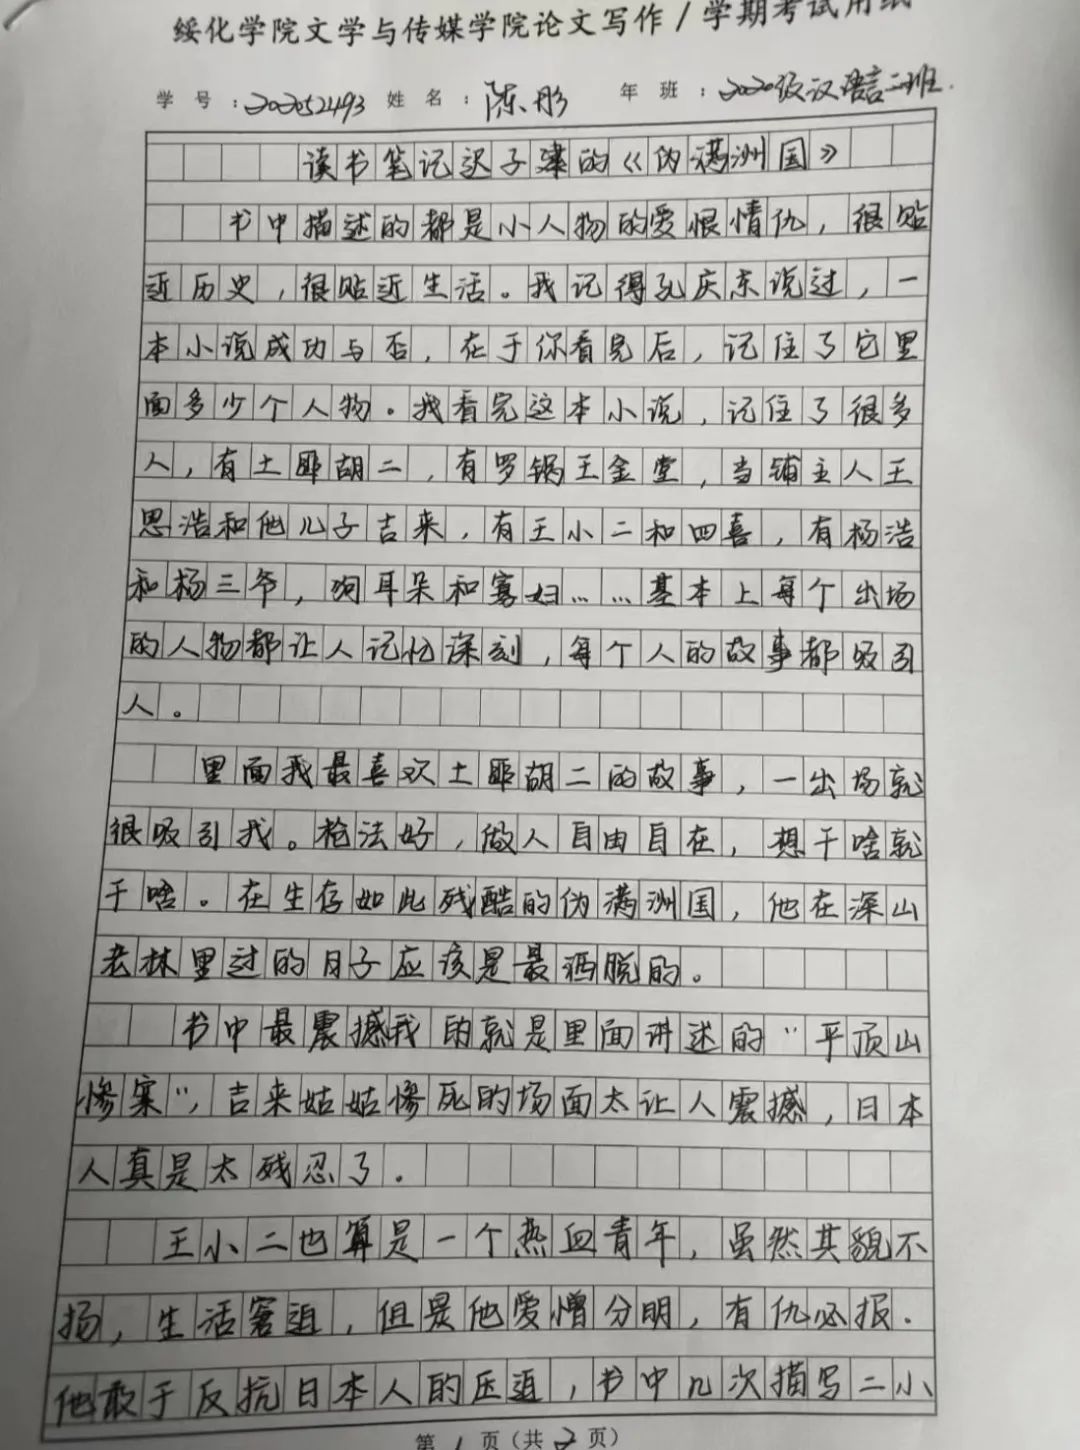 绥化学院文学与传媒学院论文写作/学期考试用纸
学号:202052493 姓名:陈彤 年班:2020级汉语言二班.
读书笔记迟子建的《伪满洲国》
书中描述的都是小人物的爱恨情仇，很贴
近历史，很贴近生活。我记得孔庆东说过，一
本小说成功与否，在于你看完后，记住了它里
面多少个人物。我看完这本小说，记住了很多
人，有土匪胡二，有罗锅王金堂，当铺主人王
恩浩和他儿子吉来，有王小二和四喜，有杨浩
和杨三爷，狗耳朵和寡妇……基本上每个出场
的人物都让人记忆深刻，每个人的故事都吸引
人。
里面我最喜欢土匪胡二的故事，一出场就
很吸引我。枪法好，做人自由自在，想干啥就
干啥。在生存如此残酷的伪满洲国，他在深山
老林里过的日子应该是最洒脱的。
书中最震撼我的就是里面讲述的“平顶山
惨案”，吉来姑姑惨死的场面太让人震撼，日本
人真是太残忍了.
王小二也算是一个热血青年，虽然其貌不
扬，生活窘迫，但是他爱憎分明，有仇必报.
他敢于反抗日本人的压迫，书中几次描写二小
第1页(共2页)